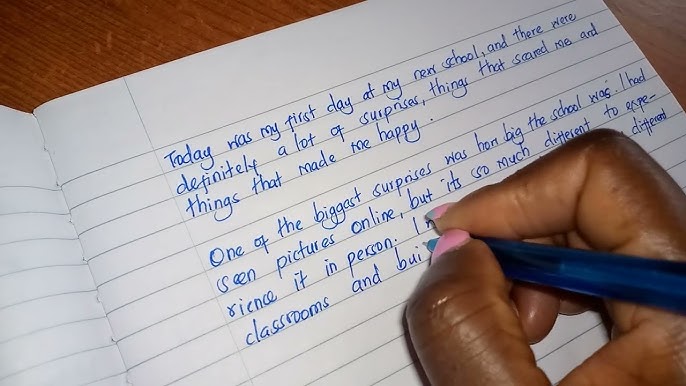 Today was my first day at my new school, and there were
definitely a lot of surprises, things that scared me and
things that made me happy.
One of the biggest surprises was how big the school was. I had
seen pictures online, but its so much different to expe-
rience it in person. I different
classrooms and bui